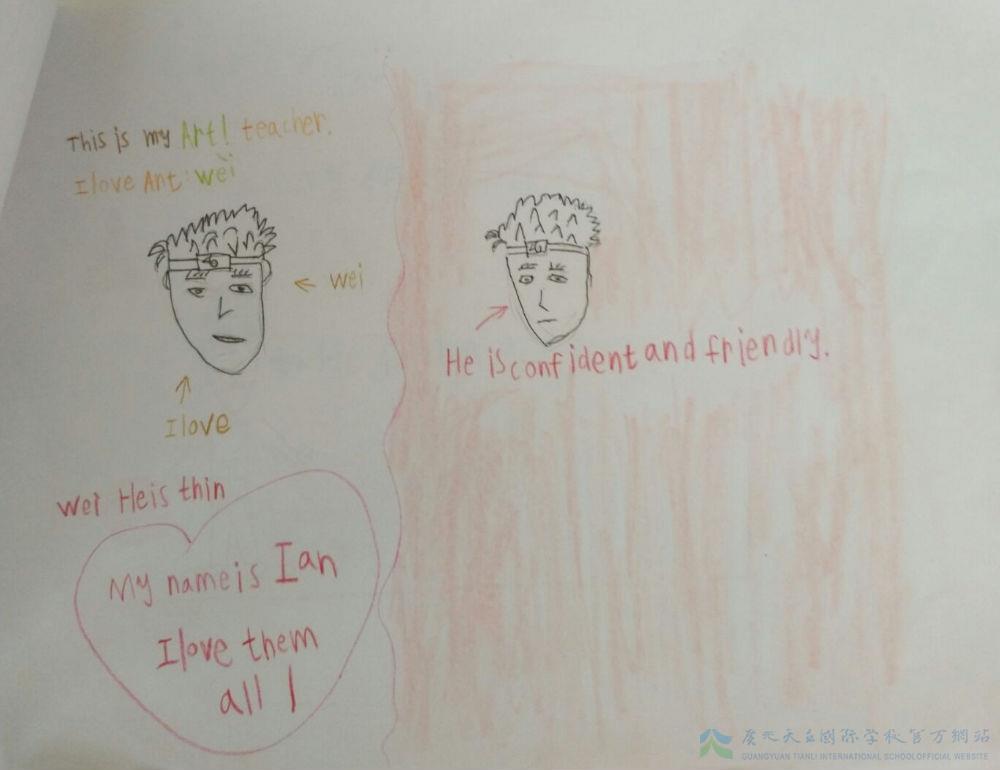 This is my Art! teacher.
I love Art: wèi
← wei
↑
I love
wei He is thin
My name is Ian
I love them
all !
He is confident and friendly.
广元天立国际学校官方網站
GUANGYUAN TIANLI INTERNATIONAL SCHOOLOFFICIAL WEBSITE